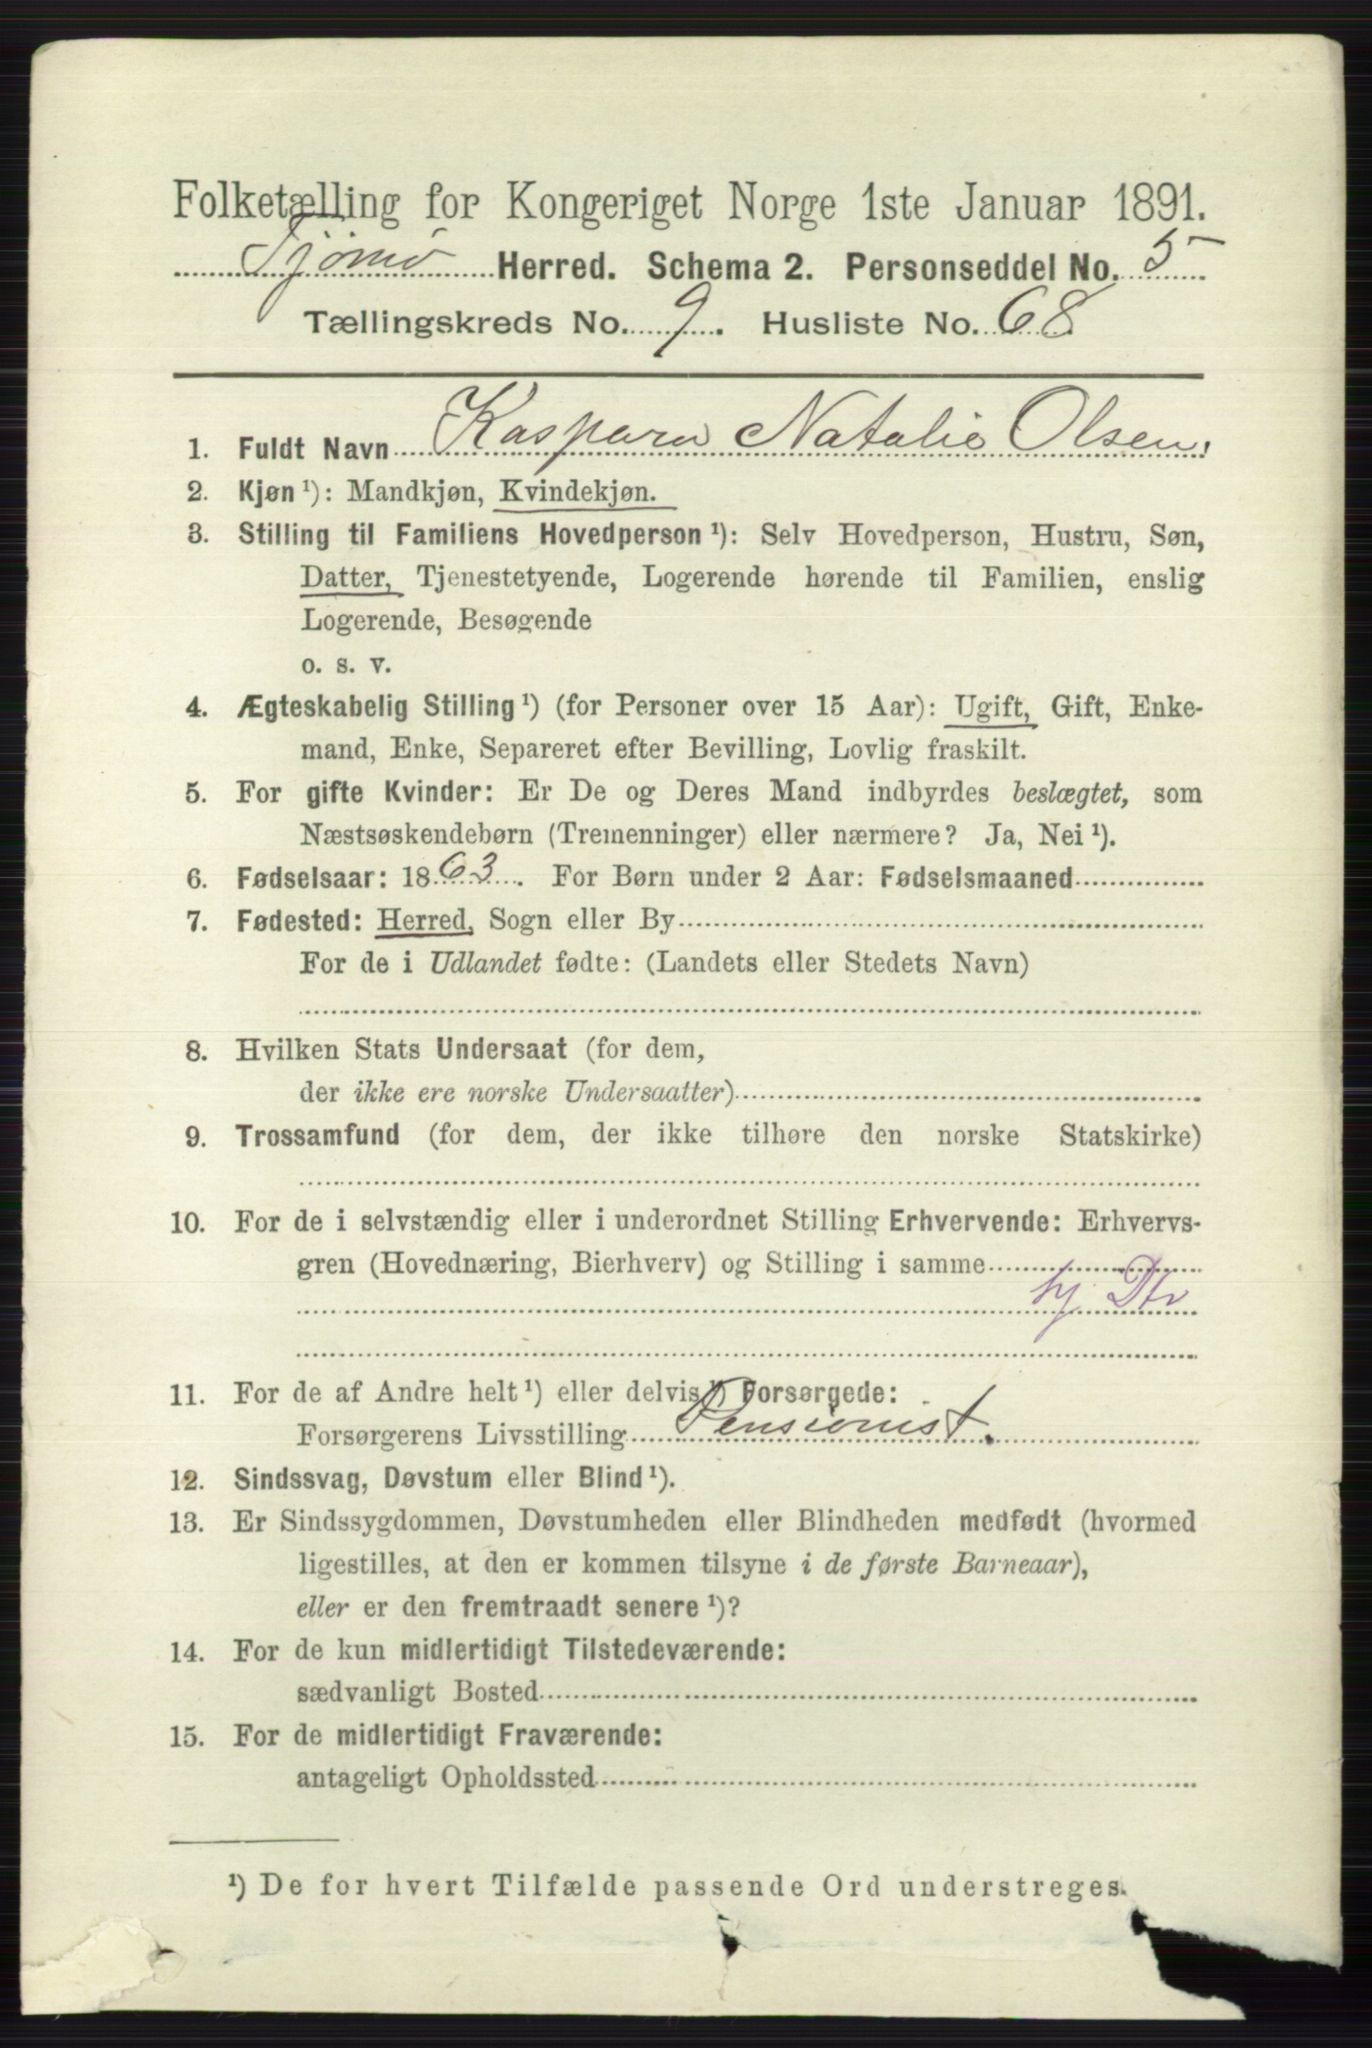 Folketælling for Kongeriget Norge 1ste Januar 1891.
Tjømø Herred. Schema 2. Personseddel No. 5
Tællingskreds No. 9. Husliste No. 68
1. Fuldt Navn Kaspara Natalie Olsen,
2. Kjøn ¹): Mandkjøn, Kvindekjøn.
3. Stilling til Familiens Hovedperson ¹): Selv Hovedperson, Hustru, Søn,
Datter, Tjenestetyende, Logerende hørende til Familien, enslig
Logerende, Besøgende
o. s. v.
4. Ægteskabelig Stilling ¹) (for Personer over 15 Aar): Ugift, Gift, Enke-
mand, Enke, Separeret efter Bevilling, Lovlig fraskilt.
5. For gifte Kvinder: Er De og Deres Mand indbyrdes beslægtet, som
Næstsøskendebørn (Tremenninger) eller nærmere? Ja, Nei ¹).
6. Fødselsaar: 1863. For Børn under 2 Aar: Fødselsmaaned
7. Fødested: Herred, Sogn eller By
For de i Udlandet fødte: (Landets eller Stedets Navn)
8. Hvilken Stats Undersaat (for dem,
der ikke ere norske Undersaatter)
9. Trossamfund (for dem, der ikke tilhøre den norske Statskirke)
10. For de i selvstændig eller i underordnet Stilling Erhvervende: Erhvervs-
gren (Hovednæring, Bierhverv) og Stilling i samme
hj Dtr
11. For de af Andre helt ¹) eller delvis ¹) Forsørgede:
Forsørgerens Livsstilling Pensionist.
12. Sindssvag, Døvstum eller Blind ¹).
13. Er Sindssygdommen, Døvstumheden eller Blindheden medfødt (hvormed
ligestilles, at den er kommen tilsyne i de første Barneaar),
eller er den fremtraadt senere ¹)?
14. For de kun midlertidigt Tilstedeværende:
sædvanligt Bosted
15. For de midlertidigt Fraværende:
antageligt Opholdssted
¹) De for hvert Tilfælde passende Ord understreges.